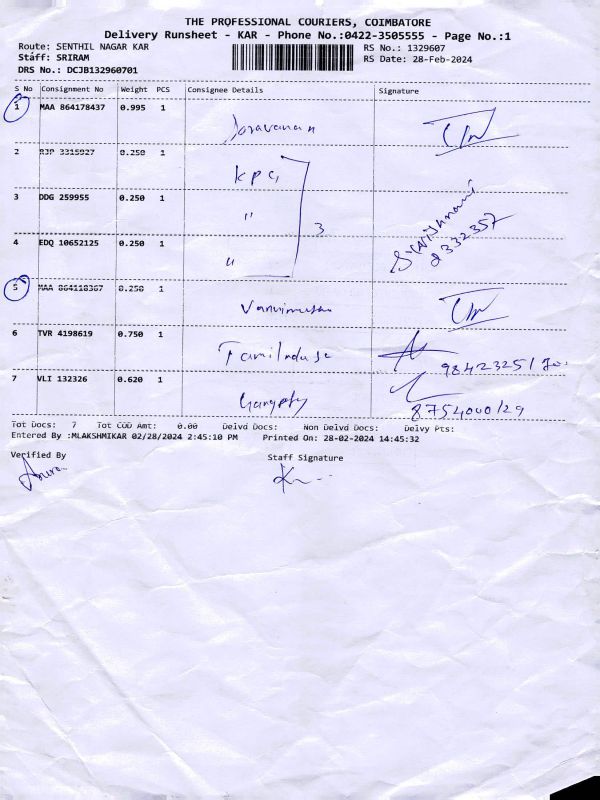 THE PROFESSIONAL COURIERS, COIMBATORE
Delivery Runsheet - KAR - Phone No.:0422-3505555 - Page No.:1
Route: SENTHIL NAGAR KAR RS No.: 1329607
Staff: SRIRAM RS Date: 28-Feb-2024
DRS No.: DCJB132960701
S No Consignment No Weight PCS Consignee Details Signature
1 MAA 864178437 0.995 1
2 RJP 3315927 0.250 1 KPG
3 DDG 259955 0.250 1 "
3
4 EDQ 10652125 0.250 1 "
2332357
5 MAA 864118367 0.250 1
6 TVR 4198619 0.750 1
7 VLI 132326 0.620 1
Tot Docs: 7 Tot COD Amt: 0.00 Delvd Docs: Non Delvd Docs: Delvy Pts:
Entered By :MLAKSHMIKAR 02/28/2024 2:45:10 PM Printed On: 28-02-2024 14:45:32
Verified By Staff Signature